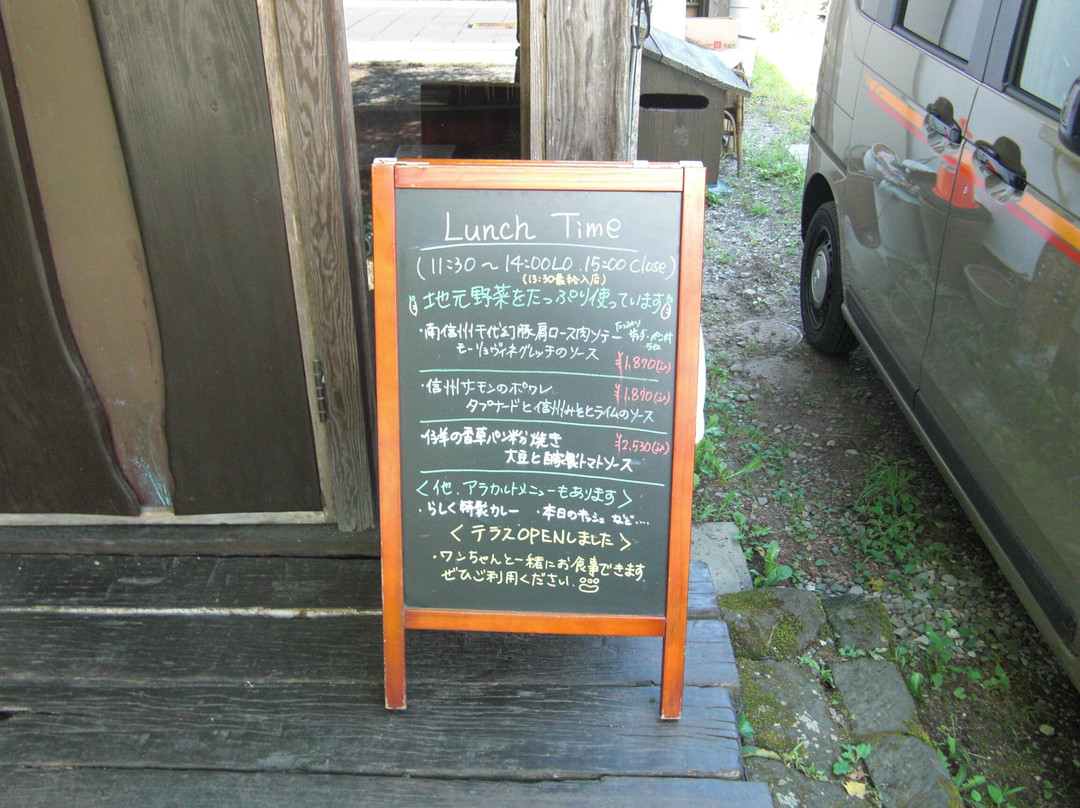 Lunch Time
(11:30～14:00LO.15:00 Close)
(13:30最終入店)
地元野菜をたっぷり使っています
・南信州千代幻豚肩ロース肉ソテー
モーリョヴィネグレッチのソース
¥1,870(込)
・信州サーモンのポワレ
¥1,870(込)
タプナードと信州みそとライムのソース
・仔羊の香草パン粉焼き
¥2,530(込)
大豆と自家製トマトソース
＜他、アラカルトメニューもあります＞
・らしく特製カレー ・本日のキッシュ など....
＜テラスOPENしました＞
・ワンちゃんと一緒にお食事できます
ぜひご利用ください.